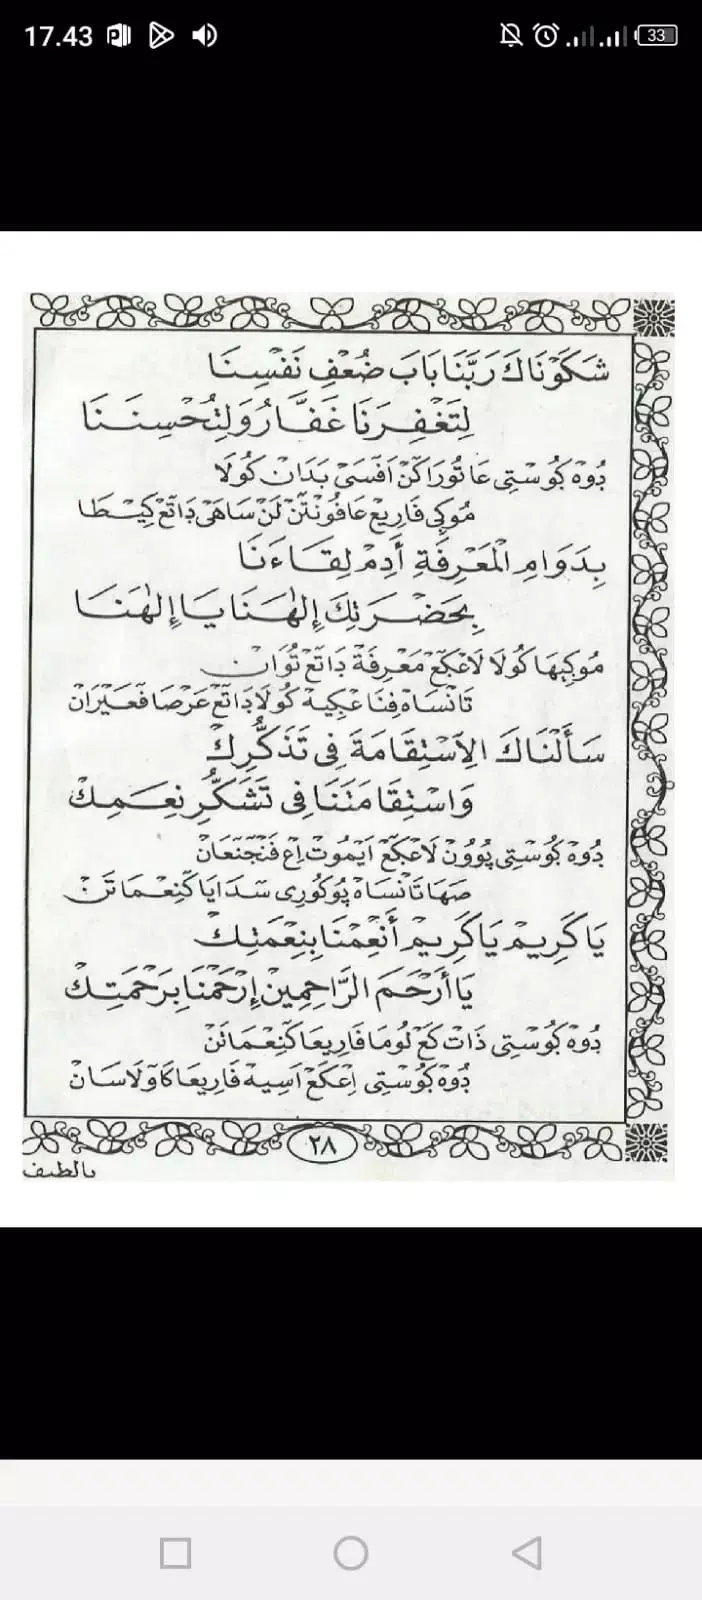 17.43
33
شَكَوْنَاكَ رَبَّنَا بَابَ ضُعْفِ نَفْسِنَا
لِتَغْفِرَنَا غَفَّارُ وَلِتُحْسِنَنَا
دُوْه كُوسْتِى عَاتُورَاكَنْ اَفَسَىْ بَدَانْ كُولَا
مُوكِى فَارِيْع عَافُونْتَنْ لَنْ سَاهَىْ دَاتَعْ كِيْطَا
بِدَوَامِ الْمَعْرِفَةِ أَدِمْ لِقَاءَنَا
بِحَضْرَتِكَ إِلٰهَنَا يَا إِلٰهَنَا
مُوكِيهَا كُولَا لَاعْكَعْ مَعْرِفَةْ دَاتَعْ تُوَانْ
تَانْسَاهْ فِنَاعْكِيهْ كُولَا دَاتَعْ عَرْصَا فَعَيْرَانْ
سَأَلْنَاكَ الِاسْتِقَامَةَ فِى تَذَكُّرِكْ
وَاسْتِقَامَتَنَا فِى تَشَكُّرِ نِعَمِكْ
دُوْه كُوسْتِى يُوْوُنْ لَاعْكَعْ اَيْمُوتْ اِعْ فَنْجَنَعَانْ
صَهَا تَانْسَاهْ يُوكُورِى سَدَايَا كَنِعْمَاتَنْ
يَا كَرِيمْ يَا كَرِيمْ أَنْعِمْنَا بِنِعْمَتِكْ
يَا أَرْحَمَ الرَّاحِمِينْ إِرْحَمْنَا بِرَحْمَتِكْ
دُوْه كُوسْتِى ذَاتْ كَعْ لُومَا فَارِيعَا كَنِعْمَاتَنْ
دُوْه كُوسْتِى اِعْكَعْ اَسِيهْ فَارِيعَا كَاوَلَاسَانْ
٢٨
يالطيف